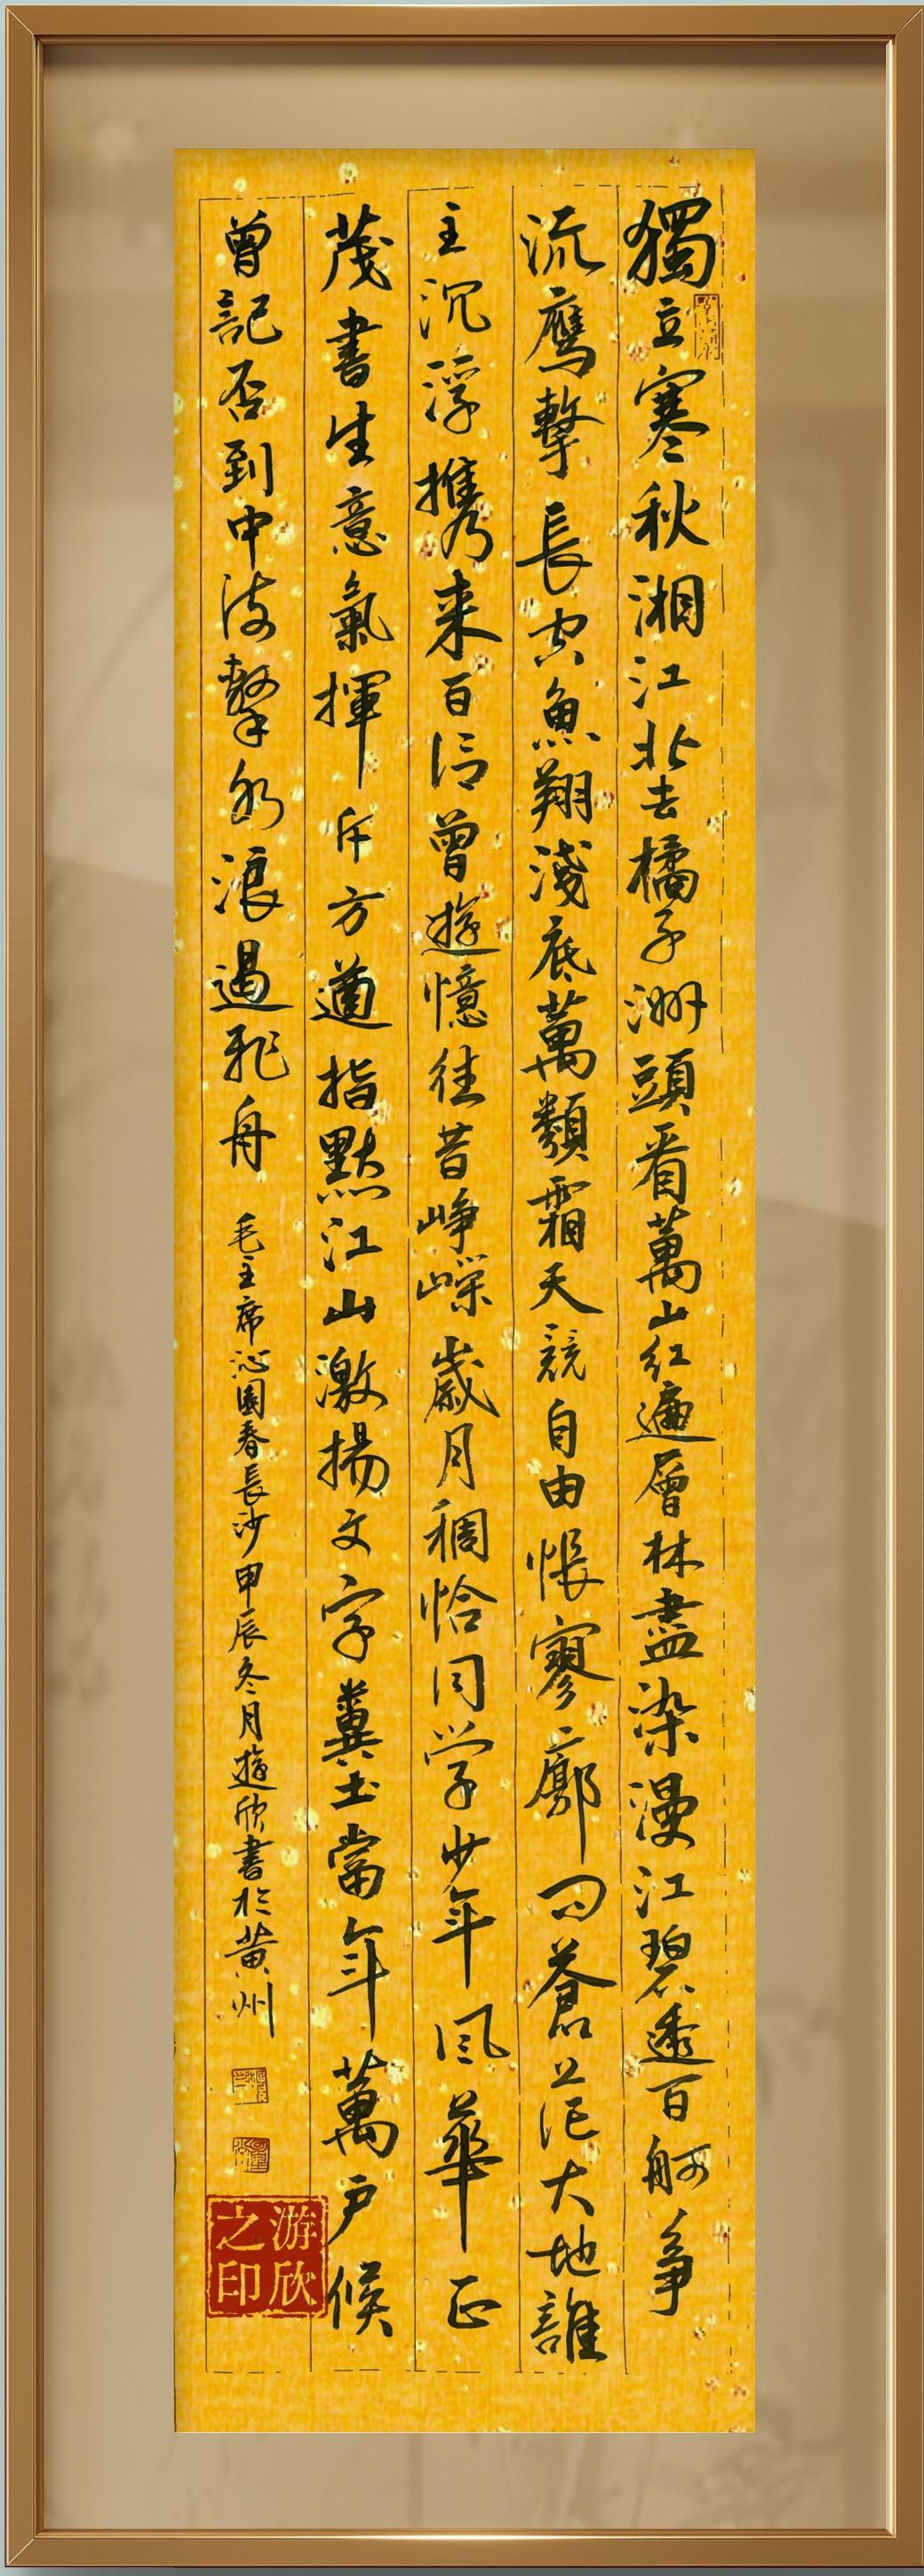 獨立寒秋湘江北去橘子洲頭看萬山红遍層林盡染漫江碧透百舸爭
流鹰擊長空魚翔淺底萬類霜天競自由悵寥廓问蒼茫大地誰
主沉浮携来百侣曾遊憶往昔崢嶸歲月稠恰同学少年风華正
茂書生意氣揮斥方遒指點江山激揚文字糞土當年萬户候
曾記否到中流擊水浪遏飛舟 毛主席沁園春長沙甲辰冬月遊欣書於黄州
游欣之印